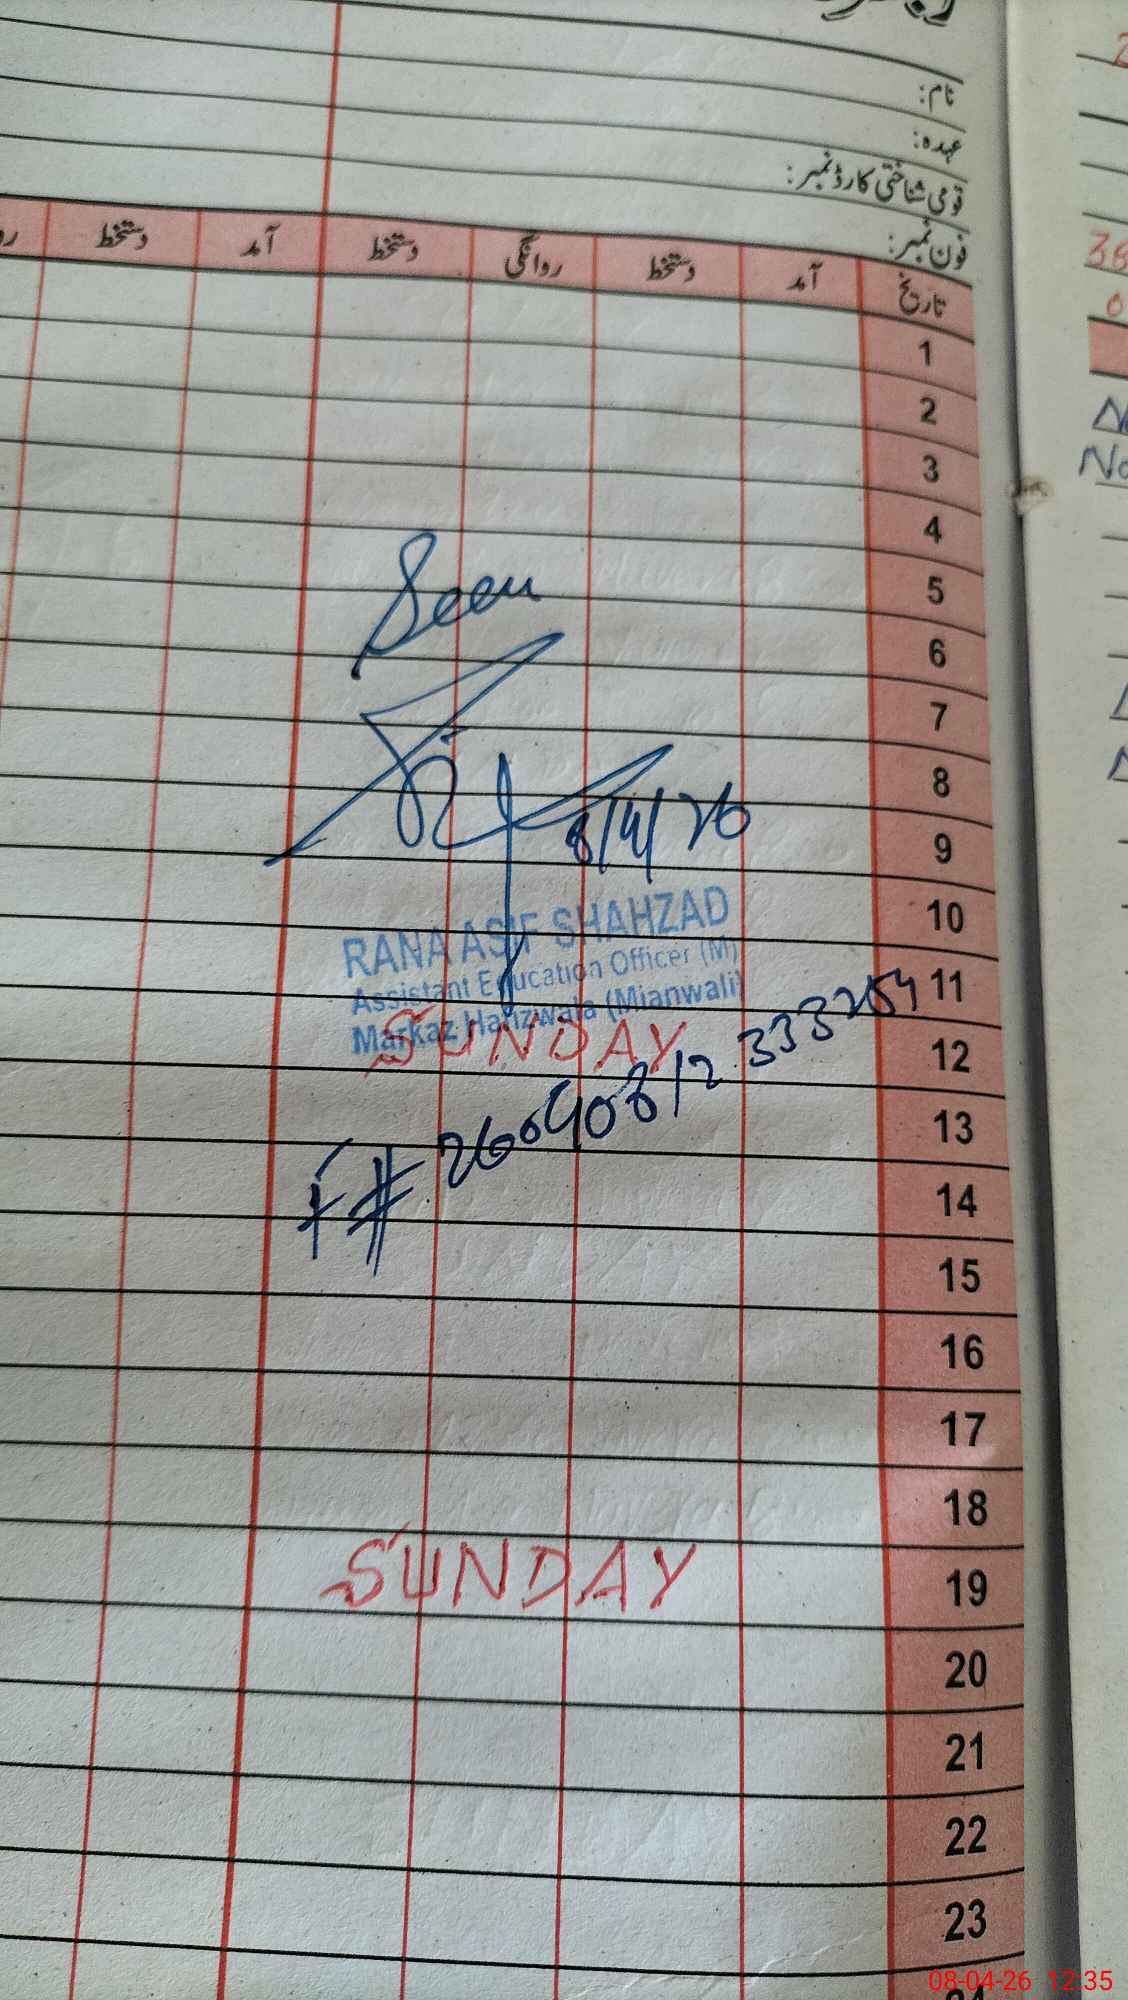 نام:
عہدہ:
قومی شناختی کارڈ نمبر:
فون نمبر:
تاریخ آمد دستخط روانگی دستخط آمد دستخط
1
2
3
4
5
Seen
6
7
8
8/4/26
9
10
RANA ASIF SHAHZAD
Assistant Education Officer (M)
11
Markaz Hafizwala (Mianwali)
SUNDAY
12
F# 26040812333254
13
14
15
16
17
18
SUNDAY
19
20
21
22
23
08-04-26 12:35